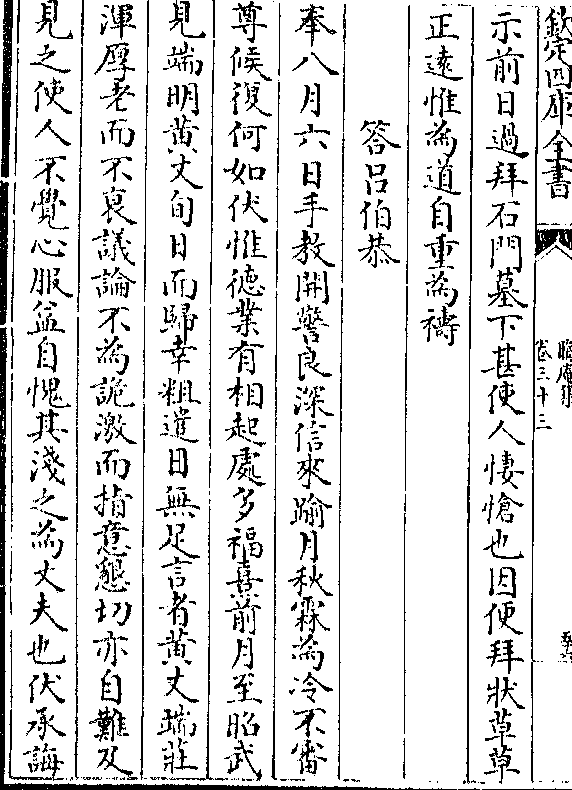 欽定四庫全書
晦庵集
卷三十三
示前日過拜石門墓下甚使人悽愴也因便拜狀草草
正遠惟為道自重為禱
答呂伯恭
奉八月六日手教開警良深信來踰月秋霖為冷不審
尊候復何如伏惟德業有相起處多福熹前月至昭武
見端明黄丈旬日而歸幸粗遣日無足言者黄丈端莊
渾厚老而不衰議論不為詭激而指意懇切亦自難及
見之使人不覺心服益自愧其淺之為丈夫也伏承誨